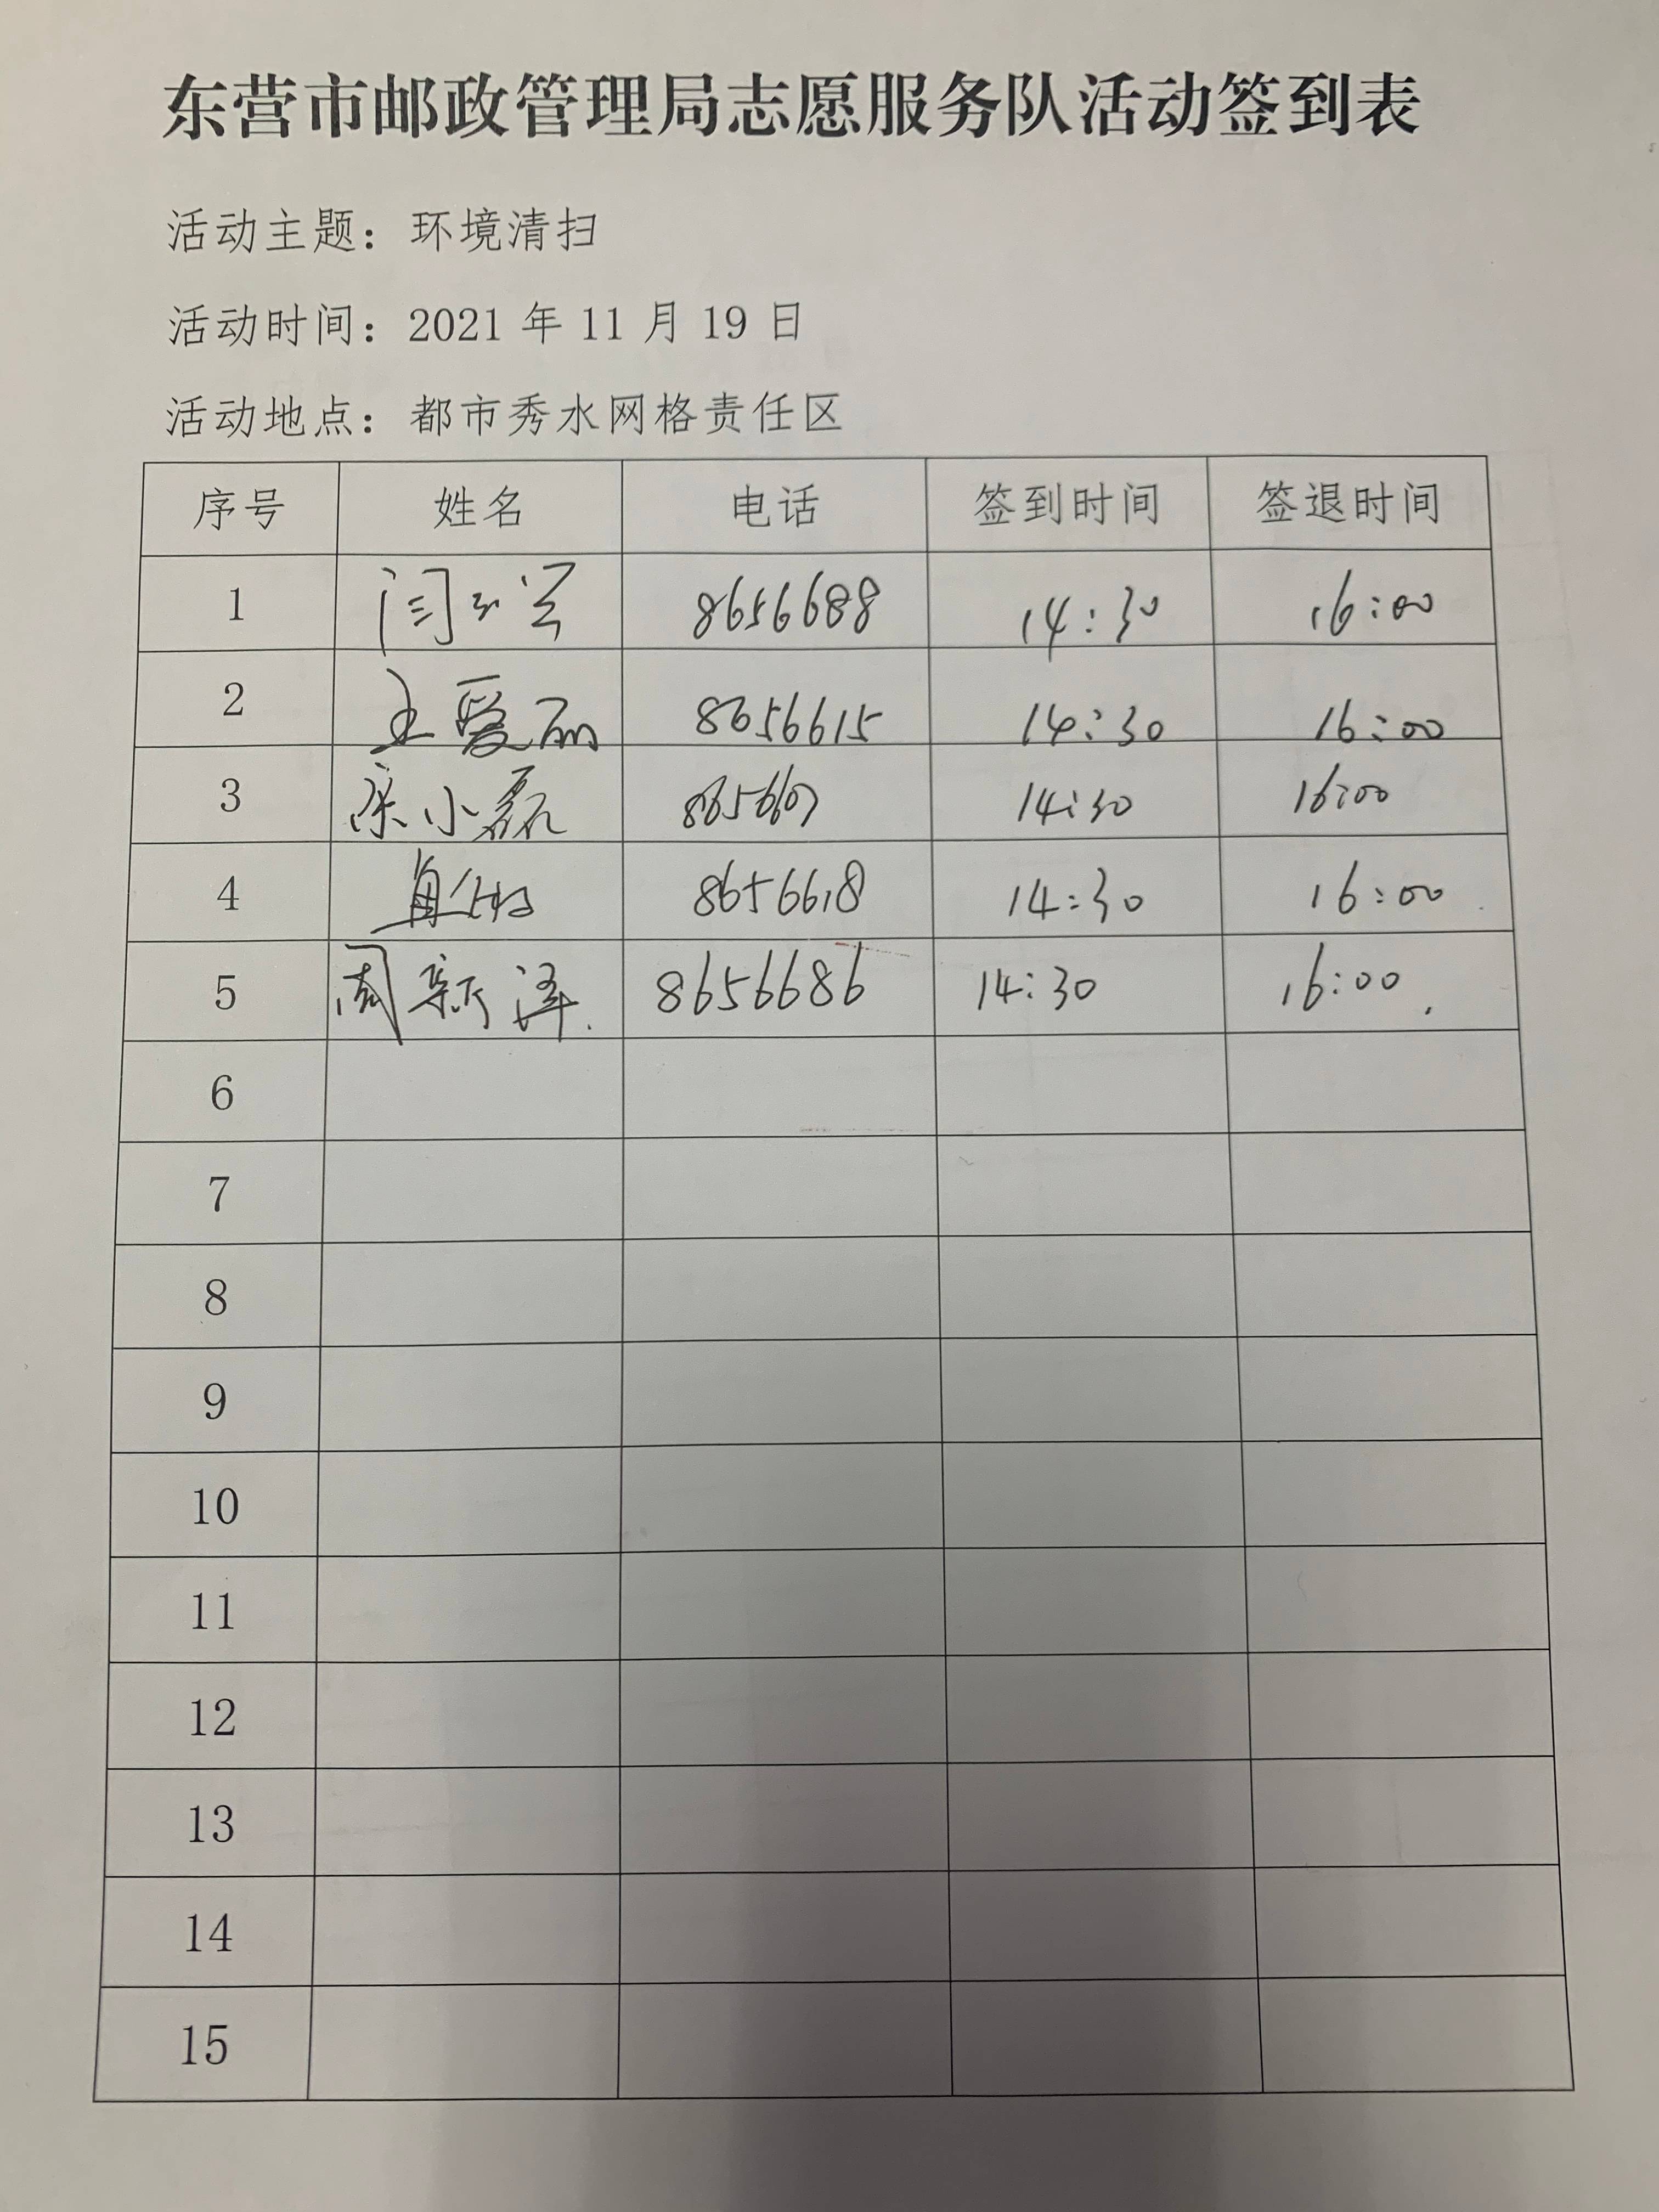 东营市邮政管理局志愿服务队活动签到表
活动主题：环境清扫
活动时间：2021 年 11 月 19 日
活动地点：都市秀水网格责任区
序号 姓名 电话 签到时间 签退时间
1 8656688 14:30 16:00
2 王爱丽 8656615 14:30 16:00
3 小磊 14:30 16:00
4 8656618 14:30 16:00
5 周新泽 8656686 14:30 16:00
6
7
8
9
10
11
12
13
14
15